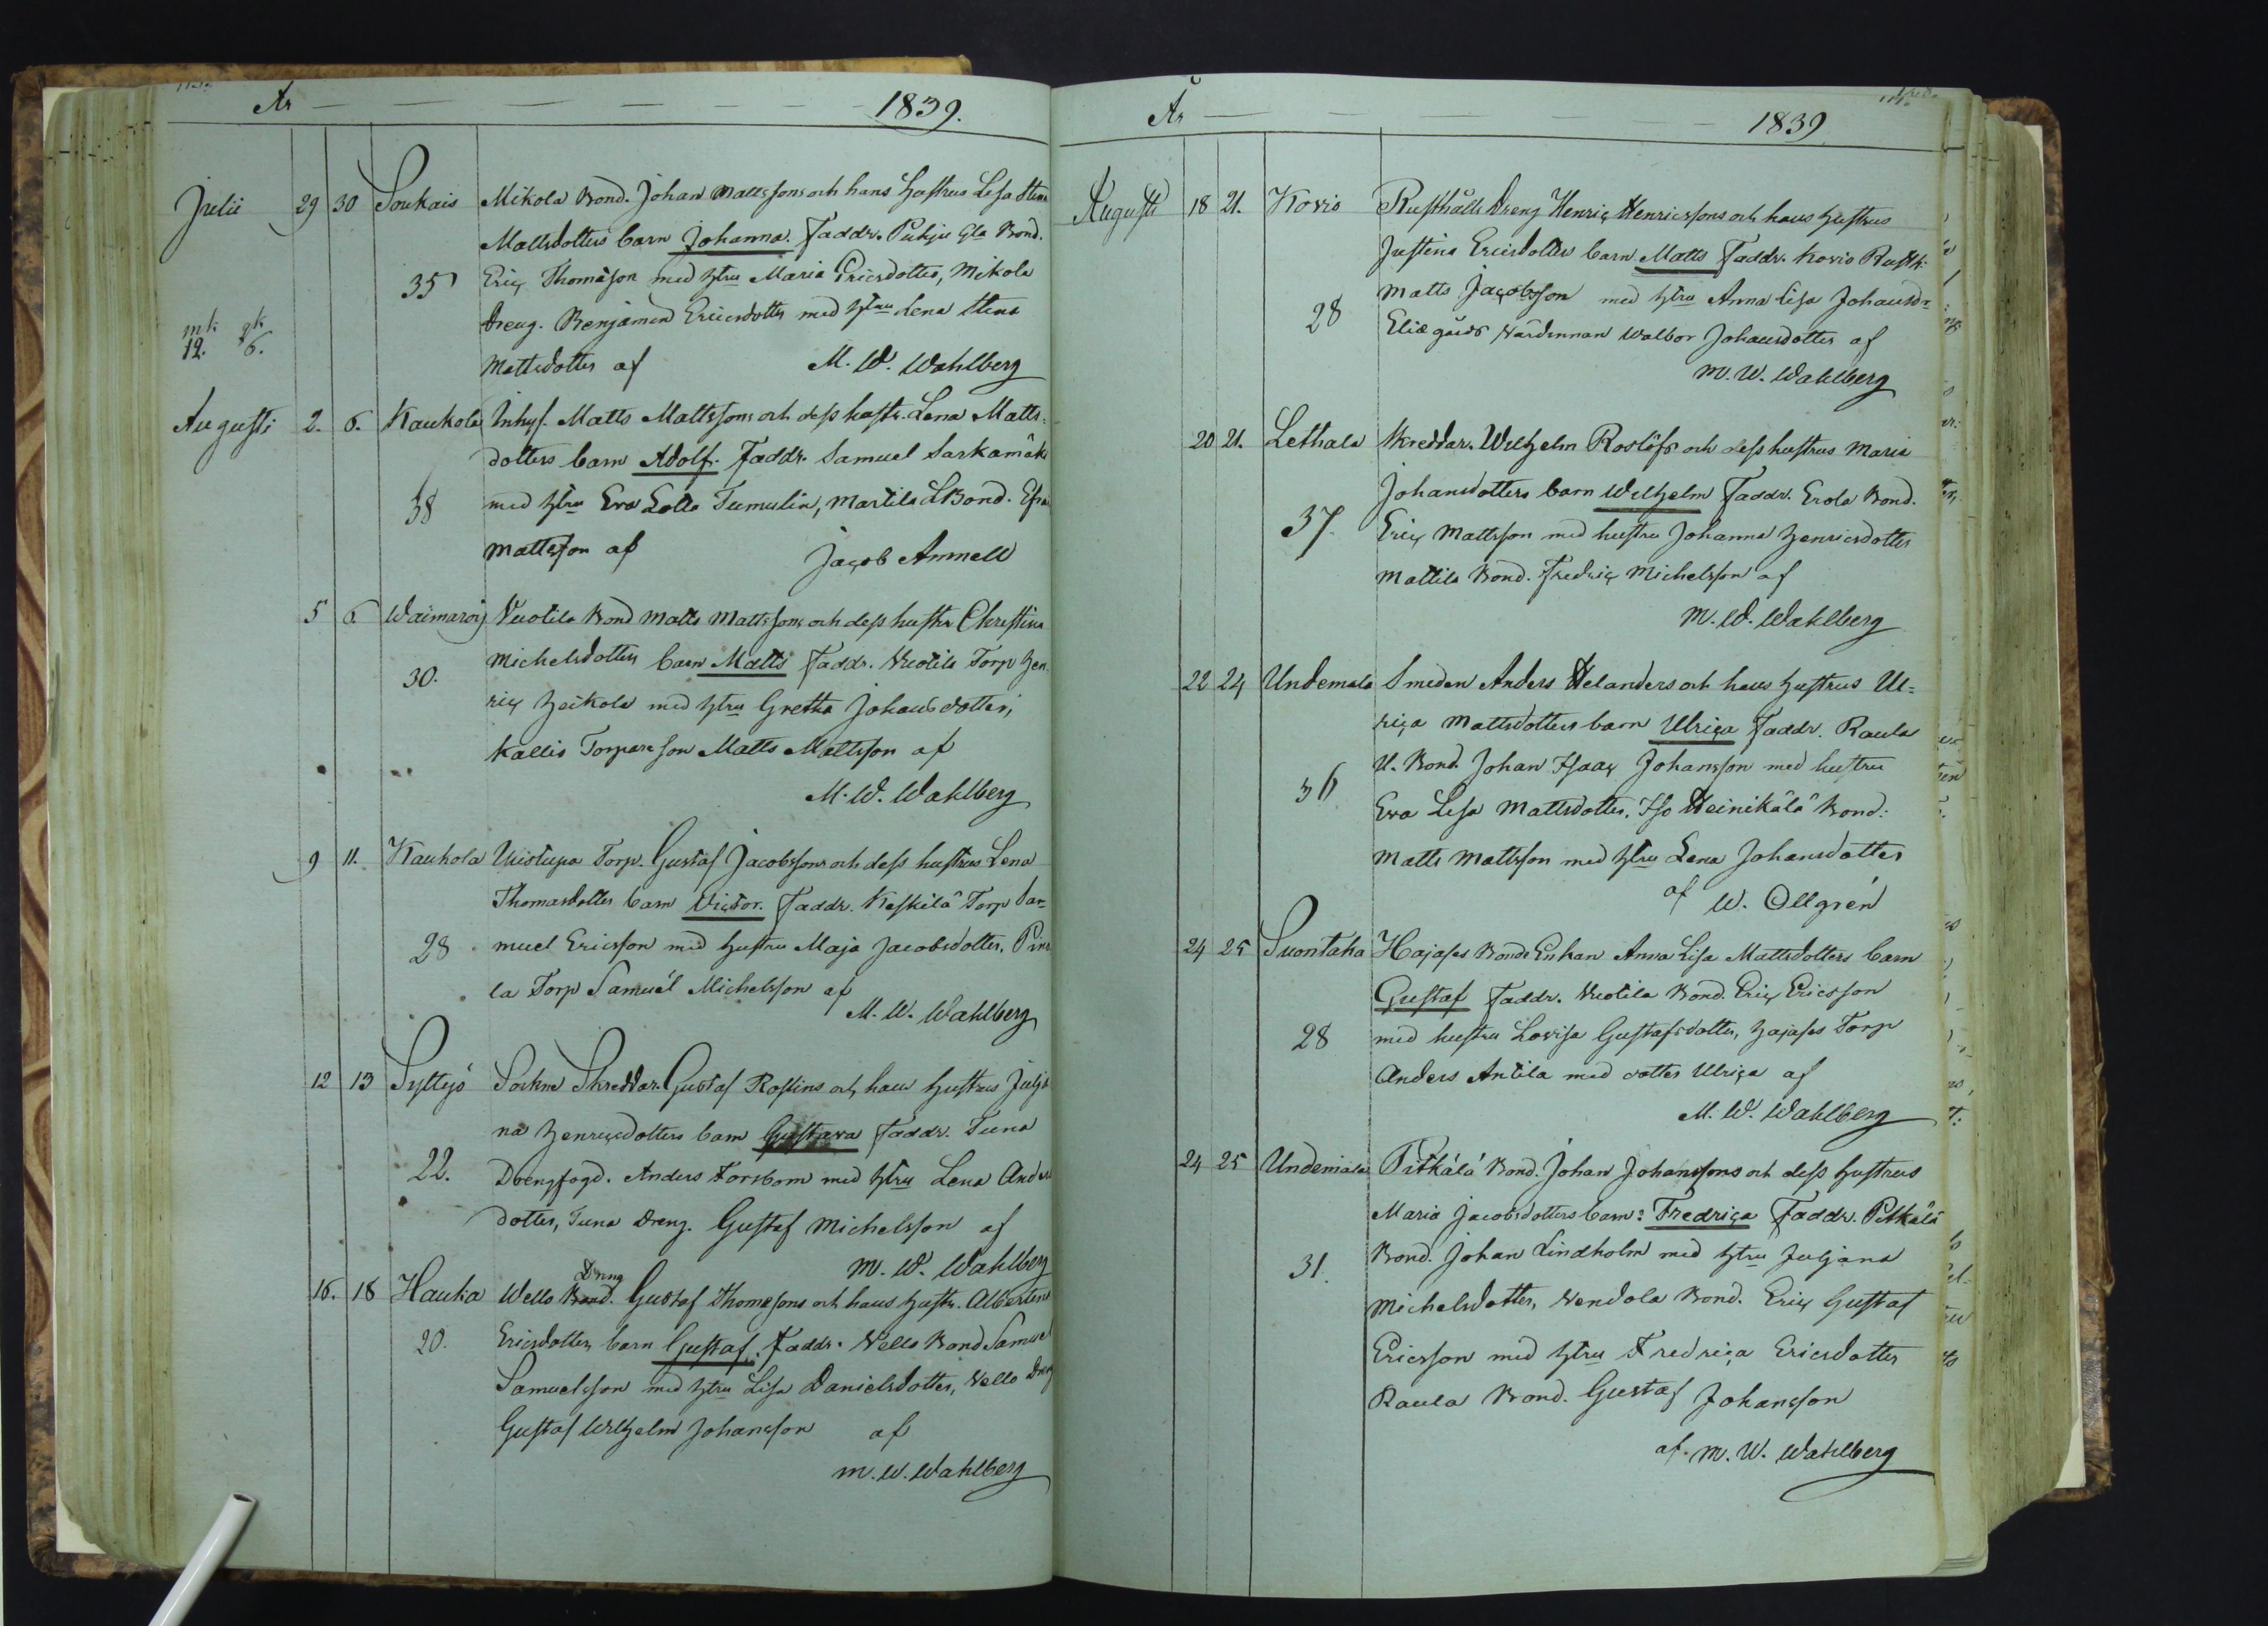 År 1839.
Julii 29 30 Soukais Mikola Bond. Johan Mattssons och hans Hustrus Lisa Stina
Mattsdotters barn Johanna. Faddr. Pukju Gla Bond.
35 Eric Thomasson med Htru Maria Ericsdotter, Mikola
Dreng. Benjamin Ericsdotter med Htru Lena Stina
mk. qk.
12. 6.
Mattsdotter af M. W. Wahlberg
Augusti 2. 6. Kaukola Inhys. Matts Mattssons och dess hustr. Lena Matts-
dotters barn Adolf. Faddr. Samuel Sarkamäki
38 med Htru Eva Lotta Tumulin, Martila LBond.
Mattsson af Jacob Ammell
5 6. Waimaroij Nuotila Bond Matts Mattssons och dess hustru Christina
Michelsdotters barn Matts Faddr. Nuotila Torp Hen-
30. ric Heikola med Htru Gretha Johansdotter,
Kallis Torpare son Matts Mattsson af
M. W. Wahlberg
9 11. Kaukola Uistupa Torp. Gustaf Jacobssons och dess hustrus Lena
Thomasdotter barn Victor. Faddr. Keskilä Torp Sa-
28 muel Ericsson med hustru Maja Jacobsdotter,
la Torp Samuel Michelsson af
M. W. Wahlberg
12 13 Syllsjö Sockne Skreddar. Gustaf Rossins och hans hustrus Julja
na Henricsdotters barn Gustava Faddr. Tuna
22. Drengfogd. Anders Forsbom med Htru Lena Anders
dotter, Tuna Dreng. Gustaf Michelsson af
M. W. Wahlberg
Dreng
16. 18 Hauka Wello Bond. Gustaf Thomassons och hans hustr. Albertina
20. Ericsdotters barn Gustaf. Faddr. Vello Bond Samuel
Samuelsson med Htru Lisa Danielsdotter, Vello Dreng
Gustaf Wilhelm Johansson af
M. W. Wahlberg
År 1839
Augusti 18 21. Kovio Rusthålls Dreng Henric Henricssons och hans hustrus
Justina Ericsdotters barn Matts Faddr. Kovio Rusth.
28 Matts Jacobsson med Htru Anna Lisa Johansdr
Elie gårds Värdinnan Walbor Johansdotter af
M. W. Wahlberg
20 21. Lethala Skreddar. Wilhelm Roslöfs och dess hustrus Maria
Johansdotters barn Wilhelm Faddr. Erola Bond.
37. Eric Mattsson med hustru Johanna Henricsdotter
Mattila Bond. Fredric Michelsson af
M. W. Wahlberg
22 24 Undemala Smeden Anders Helanders och hans hustrus Ul-
rica Mattsdotters barn Ulrica Faddr. Raula
36 U. Bond. Johan Isaac Johansson med hustru
Eva Lisa Mattsdotter, Iso Heinikälä Bond.
Matts Mattsson med Htru Lena Johansdotter
af W. Ollgrén
24 25 Suontaka Hajases Bonde Enkan Anna Lisa Mattsdotters barn
Gustaf Faddr. Nuotila Bond. Eric Ericsson
28 med hustru Lovisa Gustafsdotter, Hajases Torp
Anders Antila med dotter Ulrica af
M. W. Wahlberg
24 25 Undemala Pitkälä Bond. Johan Johanssons och dess hustrus
Maria Jacobsdotters barn: Fredrica Faddr. Pitkälä
31. Bond. Johan Lindholm med Htru Juljana
Michelsdotter, Vendola Bond. Eric Gustaf
Ericsson med Htru Fredrica Ericsdotter
Raula Bond. Gustaf Johansson
af M. W. Wahlberg